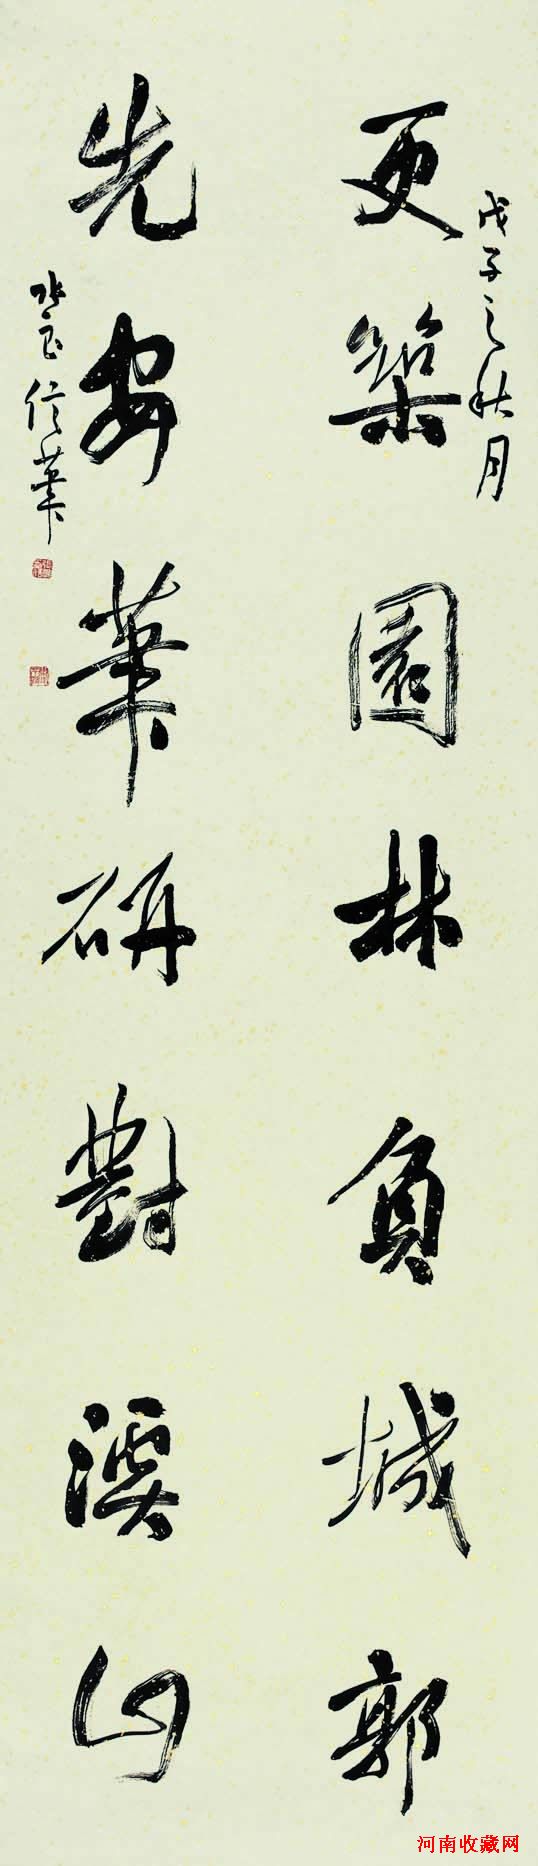 戊子之秋月
更築園林負城郭
先安筆研對溪山
信筆
河南收藏网